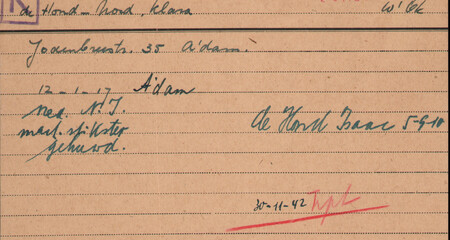 de Hond-Nord, Klara W'Ek
Jodenbreestr. 35 A'dam.
12-1-17 A'dam
Ned. N.I.
mach. stikster
gehuwd.
de Hond Isaac 5-9-18
30-11-42 Tspt